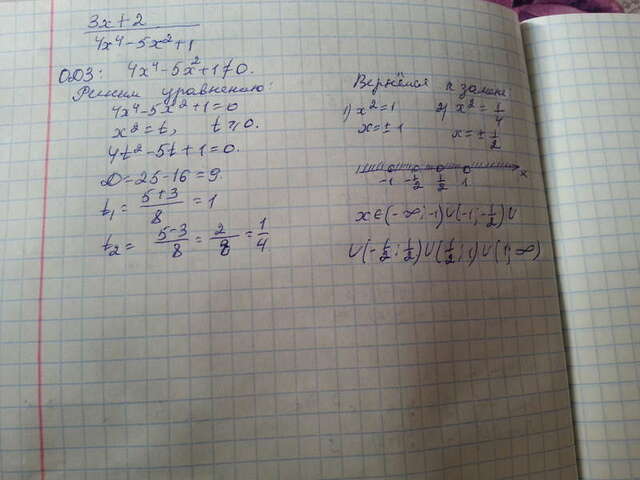 3x+2
4x⁴-5x²+1
ОДЗ: 4x⁴-5x²+1≠0.
Решим уравнение:
4x⁴-5x²+1=0
x²=t, t≥0.
4t²-5t+1=0.
D=25-16=9.
t₁= 5+3/8 =1
t₂= 5-3/8 = 2/8 = 1/4
Вернёмся к замене
1) x²=1 2) x²=1/4
x=±1 x=±1/2
-1 -1/2 1/2 1 x
x∈(-∞;-1)∪(-1;-1/2)∪
∪(-1/2;1/2)∪(1/2;1)∪(1;∞)